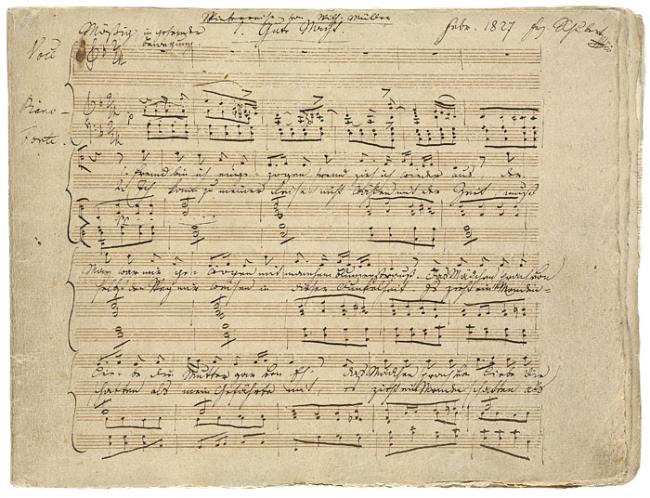 Winterreise von Wilh. Müller
Mäßig, in gehender Bewegung 1. Gute Nacht. Febr. 1827 Frz. Schubert
Piano-
Forte.
Fremd bin ich einge- zogen fremd zieh ich wieder aus der
Ich kann zu meiner Reise nicht wählen mit der Zeit, muß
Mai war mir ge- wogen mit manchem Blumenstrauß. Das Mädchen sprach von
selbst den Weg mir weisen in dieser Dunkelheit Es zieht ein Monden-
Lie- be die Mutter gar von Eh, das Mädchen sprach von Liebe die
schatten als mein Gefährte mit es zieht ein Mondenschatten als